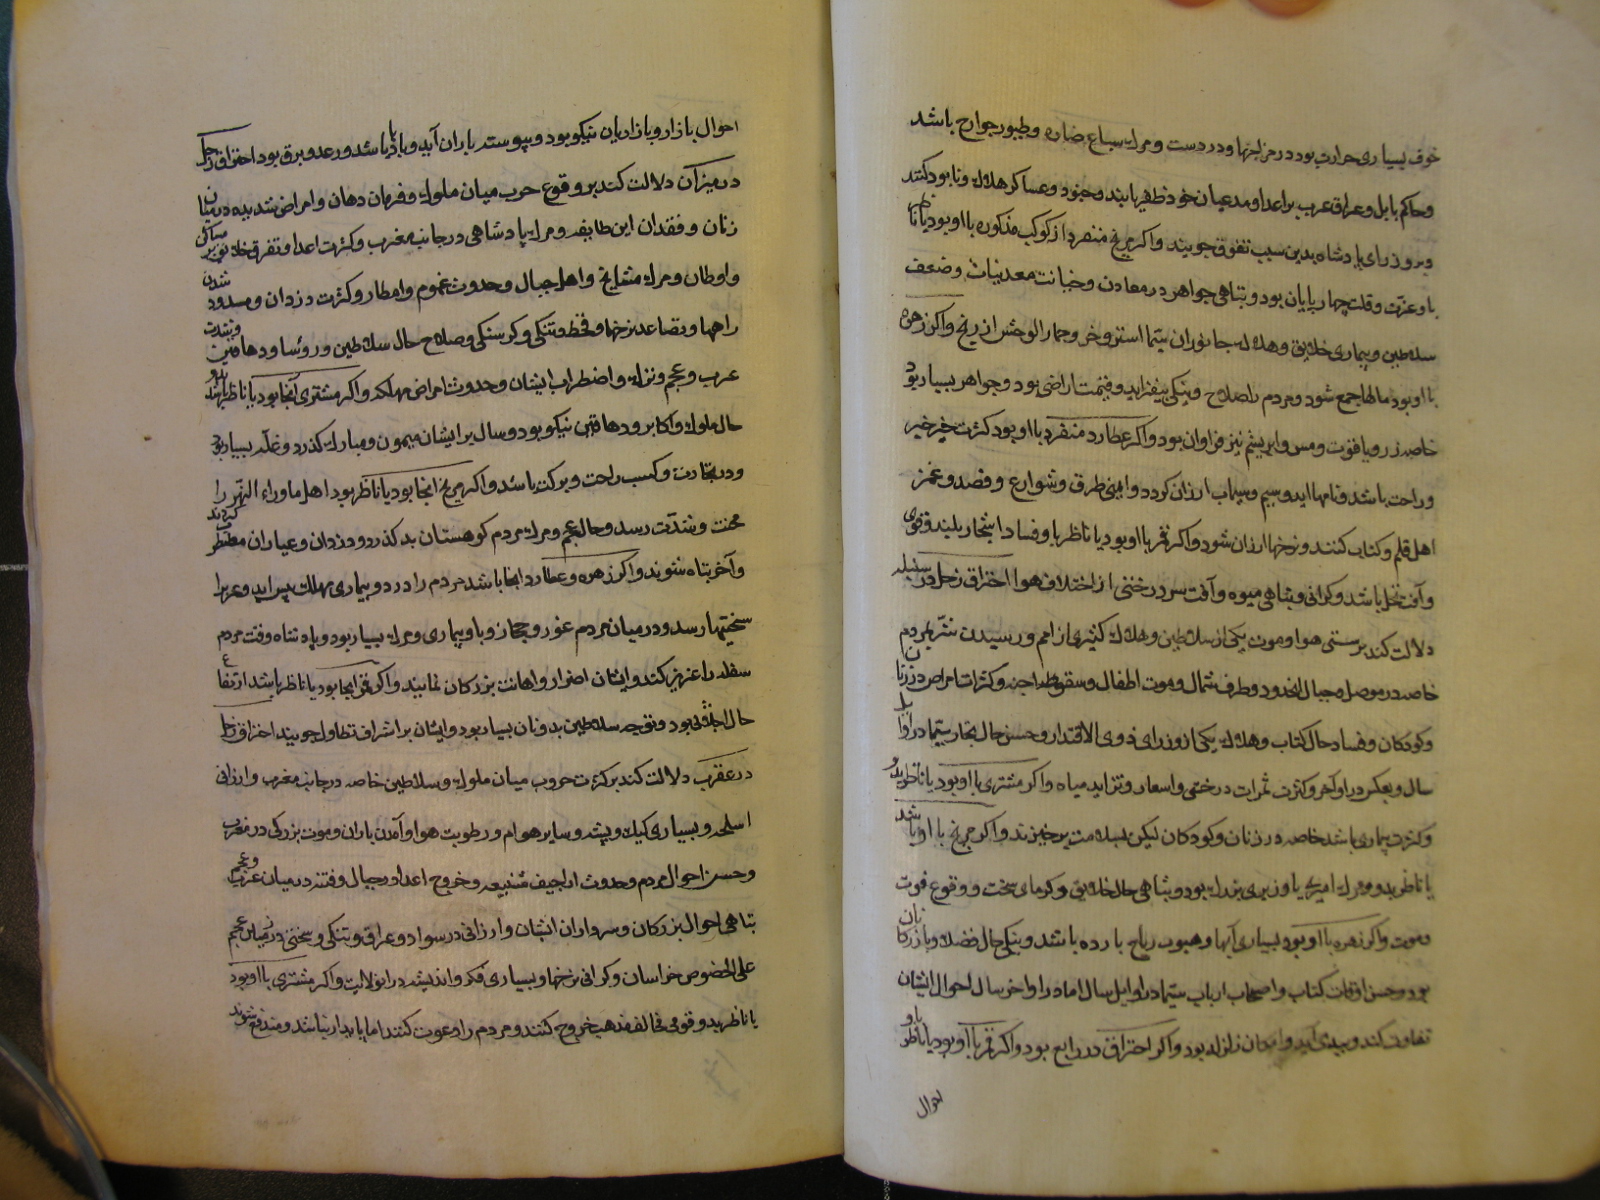 خوف بسیاری حرارت بود در مزاجها و درد دست و مرک سباع ضاره و طیور جوارح باشد
و حاکم بابل و عراق عرب بر اعدا و مدعیان خود ظفر یابند و جنود و عساکر هلاک و نابود کنند
و وزرای پادشاه بدین سبب تفوق جویند و اکر مریخ منفرد از کوکب مذکوره با او بود یا ناظر
باو عزت و قلت چهارپایان بود و تباهی جواهر در معادن و خیانت معدنیات و ضعف
سلاطین و بیماری خلایق و هلاک جانوران سیما استر و خر و حمار الوحش از ریخ و اکر زهره
با او بود مالها جمع شود و مردم را صلاح و نیکی بیفزاید و قیمت اراضی بود و جواهر بسیار بود
خاصه زر و یاقوت و مس و ابریشم نیز فراوان بود و اکر عطارد منفرد با او بود کثرت خیر
و راحت باشد و نامها اید و سیم و سیماب ارزان کردد و امنی طرق و شوارع و قصد و غمز
اهل قلم و کتاب کنند و نرخها ارزان شود و اکر قمر با او بود یا ناظر باو فساد اشجار بلند و قوی
و آفت نخل باشد و کرانی و تباهی میوه و آفت سردرختی از اختلاف هوا احتراق زحل در سنبله
دلالت کند بر سستی هوا و موت یکی از سلاطین و هلاک کثیری از امم و رسیدن شر بمردم
خاصه در موصل و جبال الحدود و طرف شمال و موت اطفال و سقوط اجنه و کثرت امراض در زنان
و کودکان و فساد حال کتاب و هلاک یکی از وزرای ذوی الاقتدار و حسن حال تجار سیما در اوایل
سال و بعکس در اواخر و کثرت ثمرات درختی و اسعار و تزاید میاه و اکر مشتری با او بود یا ناظر بدو
و کثرت بیماری باشد خاصه در زنان و کودکان لیکن بسلامت برخیزند و اکر مریخ با او باشد
یا ناظر بدو مرک امیری یا وزیری بزرک بود و تباهی حال خلایق و کرمای سخت و وقوع فوت
و موت و اکر زهره با او بود بسیاری آبها و هبوب ریاح بارده باشد و نیکی حال فضلا و بازرکانان
بود و حسن اوقات کتاب و اصحاب ارباب سیما در اوایل سال اما در اواخر سال احوال ایشان
تفاوت کند و ببدی آید و امکان زلزله بود و اکر احتراق در رابع بود و اکر قمر با او بود یا ناظر باو
احوال
احوال بازار و بازاریان نیکو بود و پیوسته باران آید و باد باشد و رعد و برق بود احتراق زحل
در میزان دلالت کند بر وقوع حرب میان ملوک و فرمان دهان و امراض شدیده در میان
زنان و فقدان این طایفه و مرک پادشاهی در جانب مغرب و کثرت اعدا و تفرق خلایق بر مساکن
و اوطان و مرک مشایخ و اهل جبال و حدوث غموم و امطار و کثرت دزدان و مسدود شدن
راهها و تصاعد نرخها و قحط و تنکی و کرسنکی و صلاح حال سلاطین و روسا و دهاقین و شدت
عرب و عجم و نزله و اضطراب ایشان و حدوث امراض مهلکه و اکر مشتری آنجا بود یا ناظر بدو
حال ملوک و اکابر و دهاقین نیکو بود و سال بر ایشان میمون و مبارک کذرد و غله بسیار بود
و در تجارت و کسب راحت و برکت باشد و اکر مریخ انجا بود یا ناظر بود اهل ماوراء النهر را
محنت و شدت رسد و حال عجم و مرک مردم کوهستان بد کذرد و دزدان و عیاران مضطر کردند
و آخر تباه شوند و اکر زهره و عطارد انجا باشد مردم را درد و بیماری مهلک پس اید و عرب را
سختیها رسد و در میان مردم غور و حجاز وبا و بیماری و مرک بسیار بود و پادشاه وقت مردم
سفله را عزیز کند و ایشان اضرار و اهانت بزرکان نمایند و اکر قمر انجا بود یا ناظر باشد ارتفاع
حال اجلاف بود و توجه سلاطین بدونان بسیار بود و ایشان بر اشراف تطاول جویند احتراق زحل
در عقرب دلالت کند بر کثرت حروب میان ملوک و سلاطین خاصه در جانب مغرب و ارزانی
اسلحه و بسیاری کیک و پشه و سایر هوام و رطوبت هوا و آمدن باران و موت بزرکی در مغرب
و حسن احوال مردم و حدوث اراجیف شنیعه و خروج اعدا در جبال و فتنه در میان عرب و عجم
تباهی احوال بزرکان و سرداران ایشان و ارزانی در سواد و عراق و تنکی و سختی در زمین عجم
علی الخصوص خراسان و کرانی نرخها و بسیاری فکر و اندیشه در انولایت و اکر مشتری با او بود
یا ناظر بدو قومی مخالف مذهب خروج کنند و مردم را دعوت کنند اما پایدار نباشد و مندفع شوند